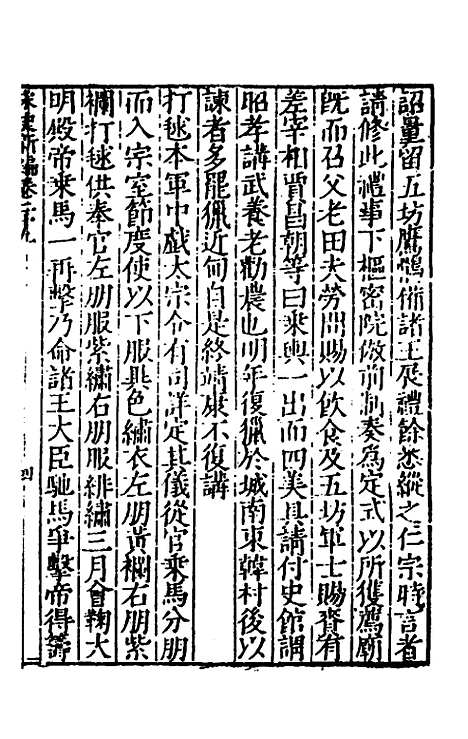 詔量留五坊鷹鶻備諸王展禮餘悉縱之仁宗時言者
請修此禮事下樞密院倣前制奏為定式以所獲薦廟
既而召父老田夫勞問賜以飲食及五坊軍士賜賚有
差宰相賈昌朝等曰乘輿一出而四美具請付史館謂
昭孝講武養老勸農也明年復獵於城南東韓村後以
諫者多罷獵近甸自是終靖康不復講
打毬本軍中戲太宗令有司詳定其儀從官乘馬分朋
而入宗室節度使以下服異色繡衣左朋黃襴右朋紫
襴打毬供奉官左朋服紫繡右朋服緋繡三月會鞠大
明殿帝乘馬一再擊乃命諸王大臣馳馬爭擊帝得籌
宋史新編卷二十九
四